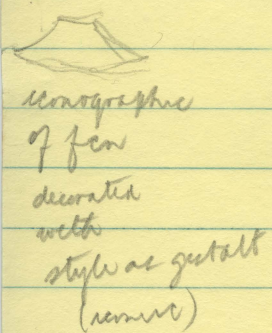 iconographic
of fan
decorated
with
style as gestalt
(iconic)